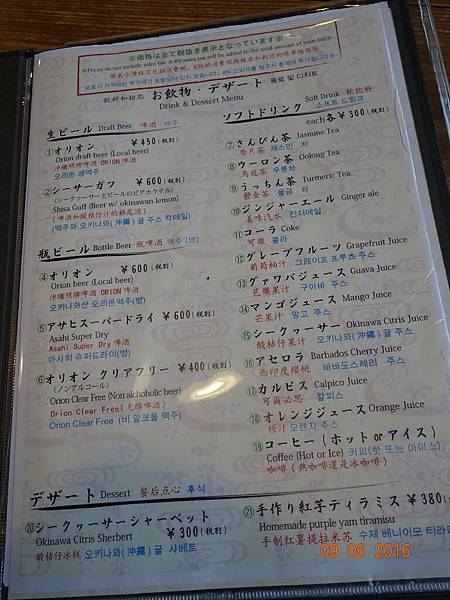 ※価格は全て税抜き表示となっています※
※Prices do not include sales tax. A 8% sales tax will be added to the total amount of your bill※
飲料和甜點 お飲物・デザート 음료 및 디저트
Drink & Dessert Menu
生ビール Draft Beer 啤酒 맥주
①オリオン ¥450(税別)
Orion draft beer (Local beer)
沖繩照牌啤酒 ORION啤酒
오리온 생맥주
②シーサーガフ ¥600(税別)
(シークヮーサーとビールのビアカクテル)
Shisa Guff (Beer w/ okinawan lemon)
(啤酒和酸桔仔汁的雞尾酒)
(맥주와 오키나와(沖繩) 귤 주스 칵테일)
瓶ビール Bottle Beer 瓶啤酒 맥주 (병)
④オリオン ¥600(税別)
Orion beer (Local beer)
沖繩照牌啤酒 ORION啤酒
오키나와산 오리온맥주(병)
⑤アサヒスーパードライ ¥600(税別)
Asahi Super Dry
Asahi Super Dry 啤酒
아사히 슈퍼드라이(병)
⑥オリオン クリアフリー ¥400(税別)
(ノンアルコール)
Orion Clear Free (Non alkoholic beer)
Orion Clear Free(无醇啤酒)
Orion Clear Free (비 알코올 맥주)
ソフトドリンク Soft Drink 軟飲料
소프트 드링크
each各¥300(税別)
⑦さんぴん茶 Jasmine Tea
香片茶 재스민 차
⑧ウーロン茶 Oolong Tea
烏龍茶 우롱차
⑨うっちん茶 Turmeric Tea
鬱金茶 울금 차
⑩ジンジャーエール Ginger ale
姜味汽水 진저에일
⑪コーラ Coke
可樂 콜라
⑫グレープフルーツ Grapefruit Juice
葡萄柚汁 그레이프 프루츠 주스
⑬グァワバジュース Guava Juice
芭樂果汁 구아바 주스
⑭マンゴジュース Mango Juice
芒果汁 망고 주스
⑮シークヮーサー Okinawa Citris Juice
酸桔仔果汁 오키나와(沖繩) 귤 주스
⑯アセロラ Barbados Cherry Juice
西印度櫻桃 바바도스체리 주스
⑰カルピス Calpico Juice
可爾必思 칼피스
⑱オレンジジュース Orange Juice
橙汁 오렌지 주스
⑲コーヒー(ホット or アイス)
Coffee (Hot or Ice) 커피(핫 또는 아이스)
咖啡(熱咖啡還是冰咖啡)
デザート Dessert 餐后点心 후식
⑳シークヮーサーシャーベット
Okinawa Citris Sherbert ¥300(税別)
酸桔仔冰糕 오키나와(沖繩) 귤 샤베트
㉑手作り紅芋ティラミス ¥380(
Homemade purple yam tiramisu
手制红薯提拉米苏 수제 베니이모 티라미
09 06 2016